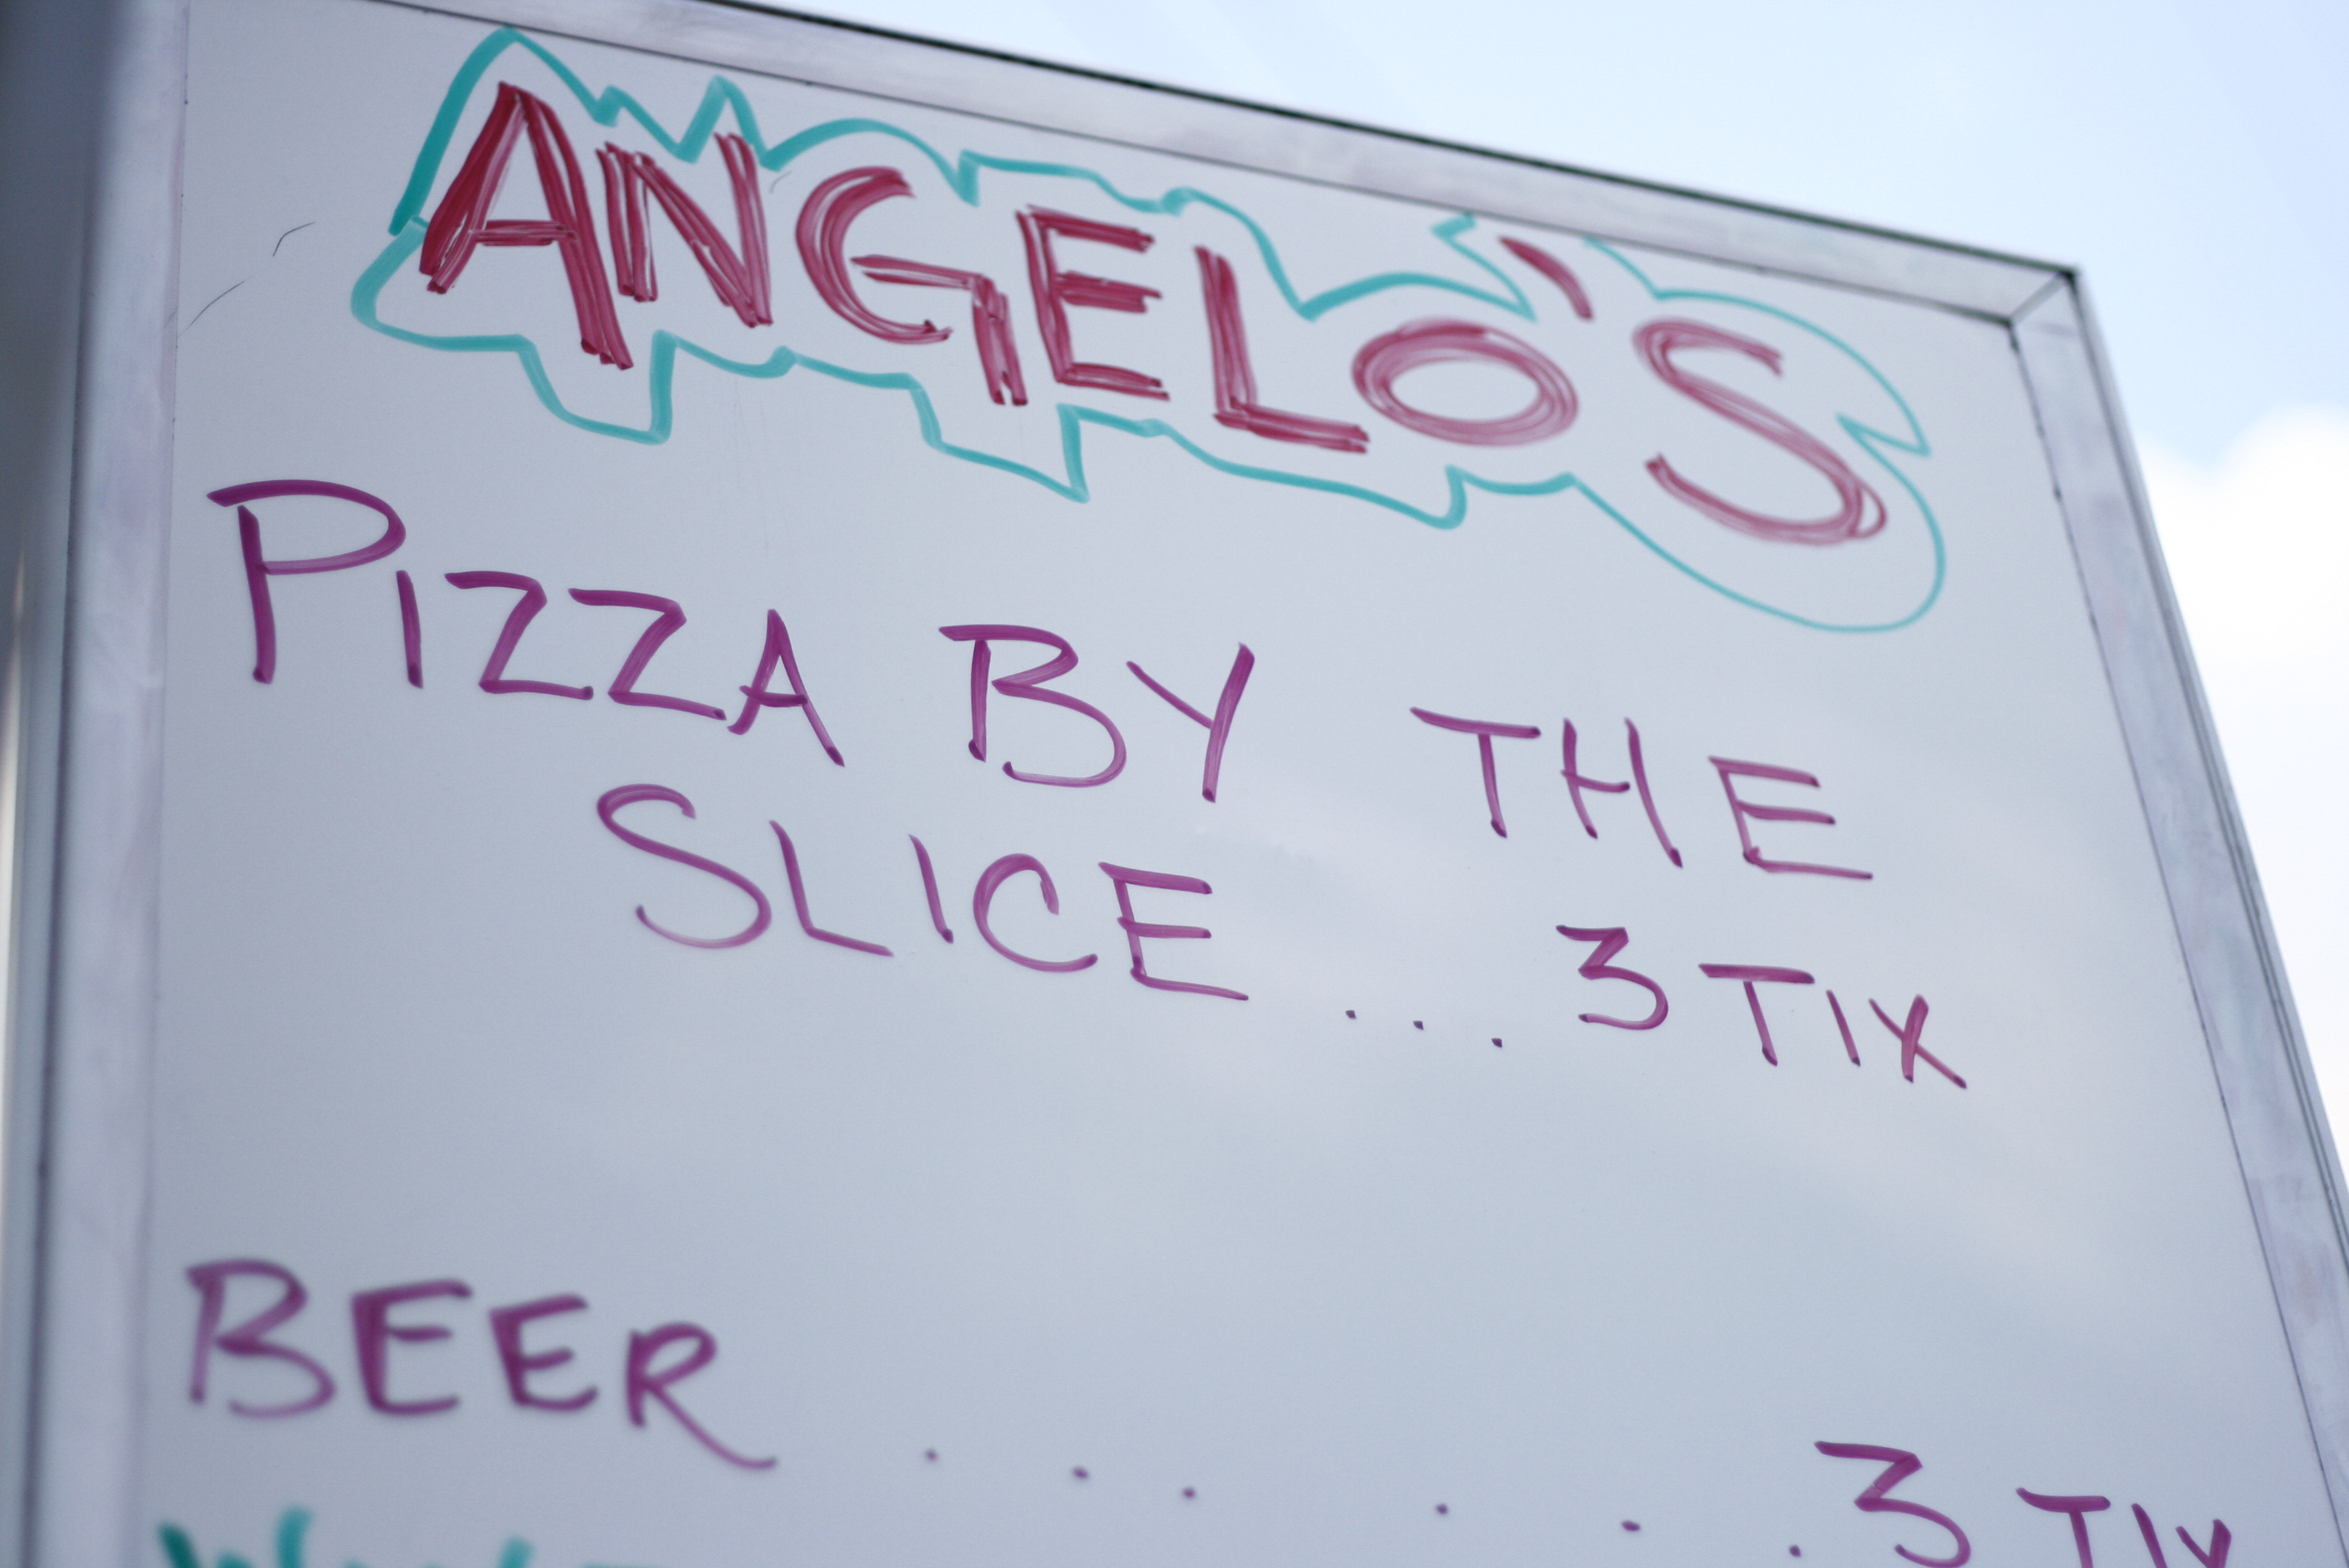 ANGELO'S
PIZZA BY THE
SLICE ... 3 TIX
BEER ...... 3 TIX